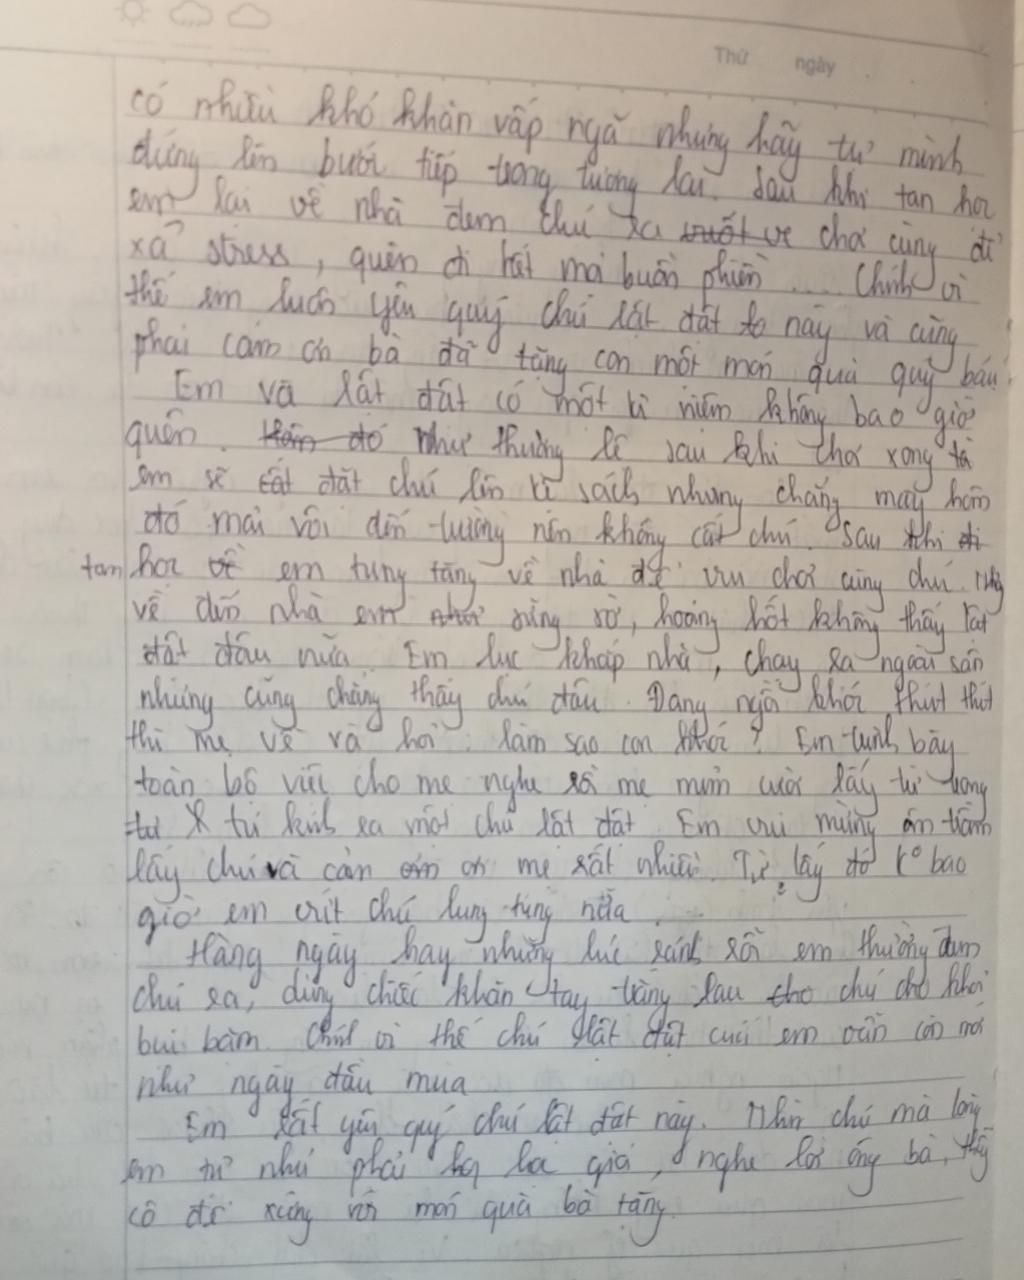 Thứ ngày
có nhiều khó khăn vấp ngã nhưng hãy tự mình
đứng lên bước tiếp trong tương lai. Sau khi tan học
em lại về nhà đem chú ra vuốt ve chơi cùng để
xả stress, quên đi hết mọi buồn phiền. Chính vì
thế em luôn yêu quý chú lật đật to này và cũng
phải cảm ơn bà đã tặng con một món quà quý báu.
Em và lật đật có một kỉ niệm không bao giờ
quên. Hôm đó Như thường lệ sau khi chơi xong
em sẽ cất đặt chú lên kì sách nhưng chẳng may hôm
đó mải vội đến trường nên không cất chú. Sau khi đi
tan học về em tung tăng về nhà để vui chơi cùng chú.
về đến nhà em sững sờ, hoảng hốt không thấy lật
đật đâu nữa. Em lục khắp nhà, chạy ra ngoài sân
nhưng cũng chẳng thấy chú đâu. Đang ngồi khóc thút thít
thì mẹ về và hỏi: làm sao con khóc? Em trình bày
toàn bộ việc cho mẹ nghe rồi mẹ mỉm cười lấy từ trong
tủ kính ra một chú lật đật. Em vui mừng ôm trầm
lấy chú và cản ơn mẹ rất nhiều. Từ lấy đó k° bao
giờ em vứt chú lung tung nữa.
Hàng ngày hay những lúc rảnh rỗi em thường đem
chú ra, dùng chiếc khăn tay trắng lau cho chú cho khỏi
bụi bặm. Chính vì thế chú lật đật cuả em vẫn còn mới
như ngày đầu mua
Em rất yêu quý chú lật đật này. Nhờ chú mà lòng
em tự nhủ phải, nghe lời ông bà, thầy
cô để xứng với món quà bà tặng.